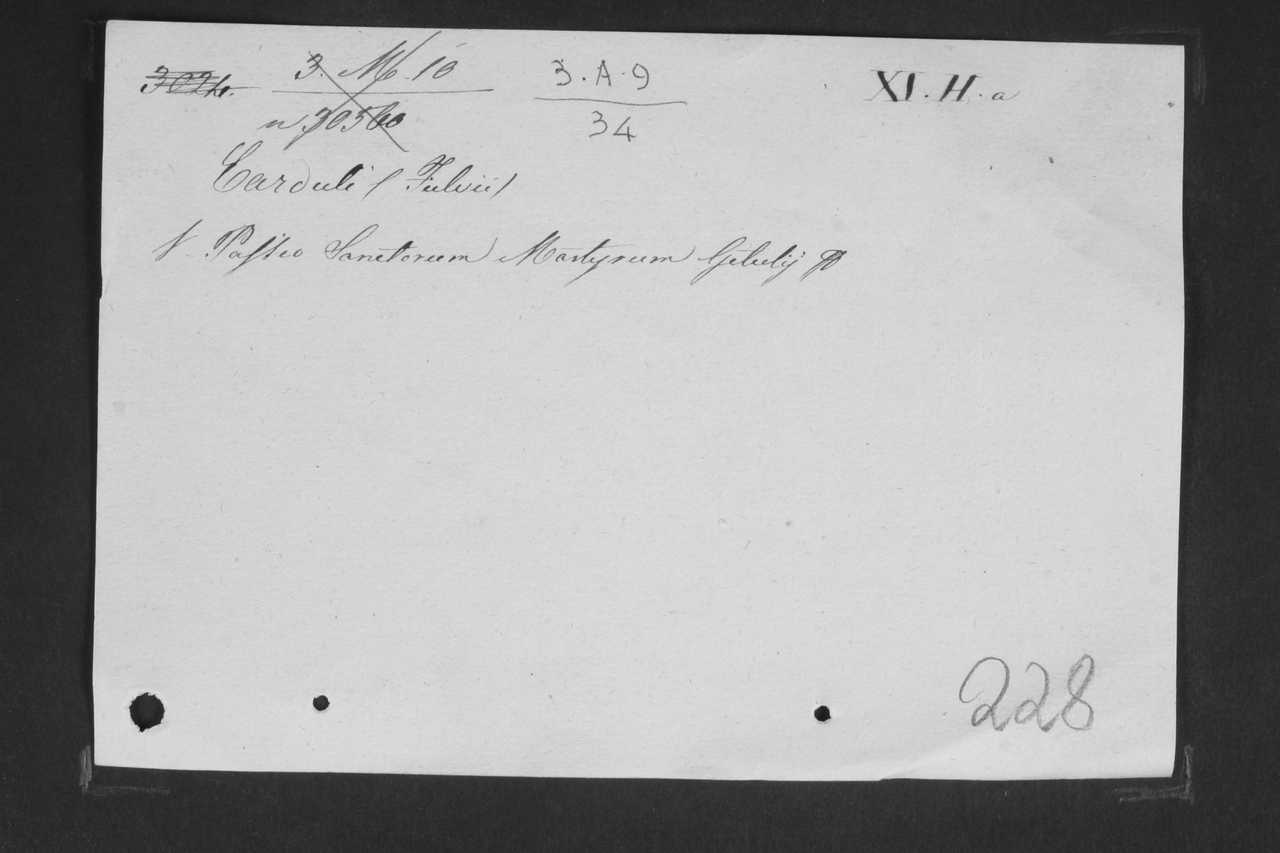 3. M. 10 3.A.9 XI.H.a
n 30560 34
Carduli (Fulvii)
Passio Sanctorum Martyrum Getulij
228